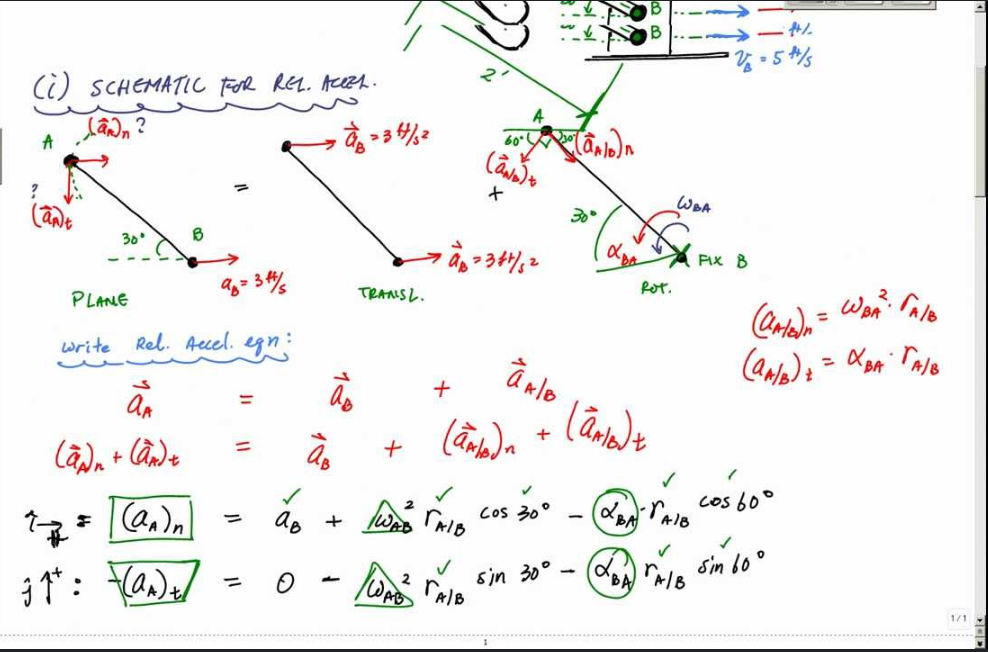 B
B
ft/s
V_B = 5 ft/s
2'
(i) SCHEMATIC FOR REL. ACCEL.
A
(a⃗_A)_n ?
?
(a⃗_A)_t
30°
B
a_B = 3 ft/s
PLANE
=
a⃗_B = 3 ft/s²
a⃗_B = 3 ft/s²
TRANSL.
+
A
60°
30°
(a⃗_A/B)_n
(a⃗_A/B)_t
30°
ω_BA
α_BA
FIX B
ROT.
(a_A/B)_n = ω_BA² · r_A/B
(a_A/B)_t = α_BA · r_A/B
Write Rel. Accel. eqn:
a⃗_A = a⃗_B + a⃗_A/B
(a⃗_A)_n + (a⃗_A)_t = a⃗_B + (a⃗_A/B)_n + (a⃗_A/B)_t
i → + = (a_A)_n = a_B + ω_AB² r_A/B cos 30° - α_BA · r_A/B cos 60°
j ↑+ : -(a_A)_t = 0 - ω_AB² r_A/B sin 30° - α_BA r_A/B sin 60°
1/1
1